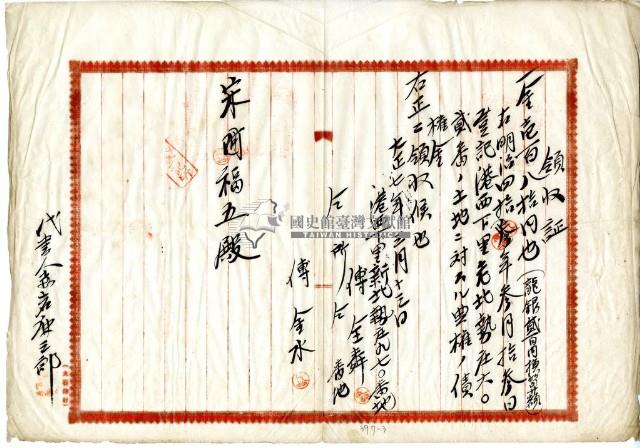 領収証
一金壱百八拾円也(龍銀貳百円換算額)
右明治四拾年参月拾参日
登記港西下里老北勢庄六〇
貳番ノ土地ニ対スル典権ノ債
権金
右正ニ領収候也
大正七年三月十三日
港西下里新北勢庄九七〇番地
傳全舜
仝所仝番地
傳全水
宋阿福五殿
代書人
國史館臺灣文獻館
TAIWAN HISTORICA
397-3